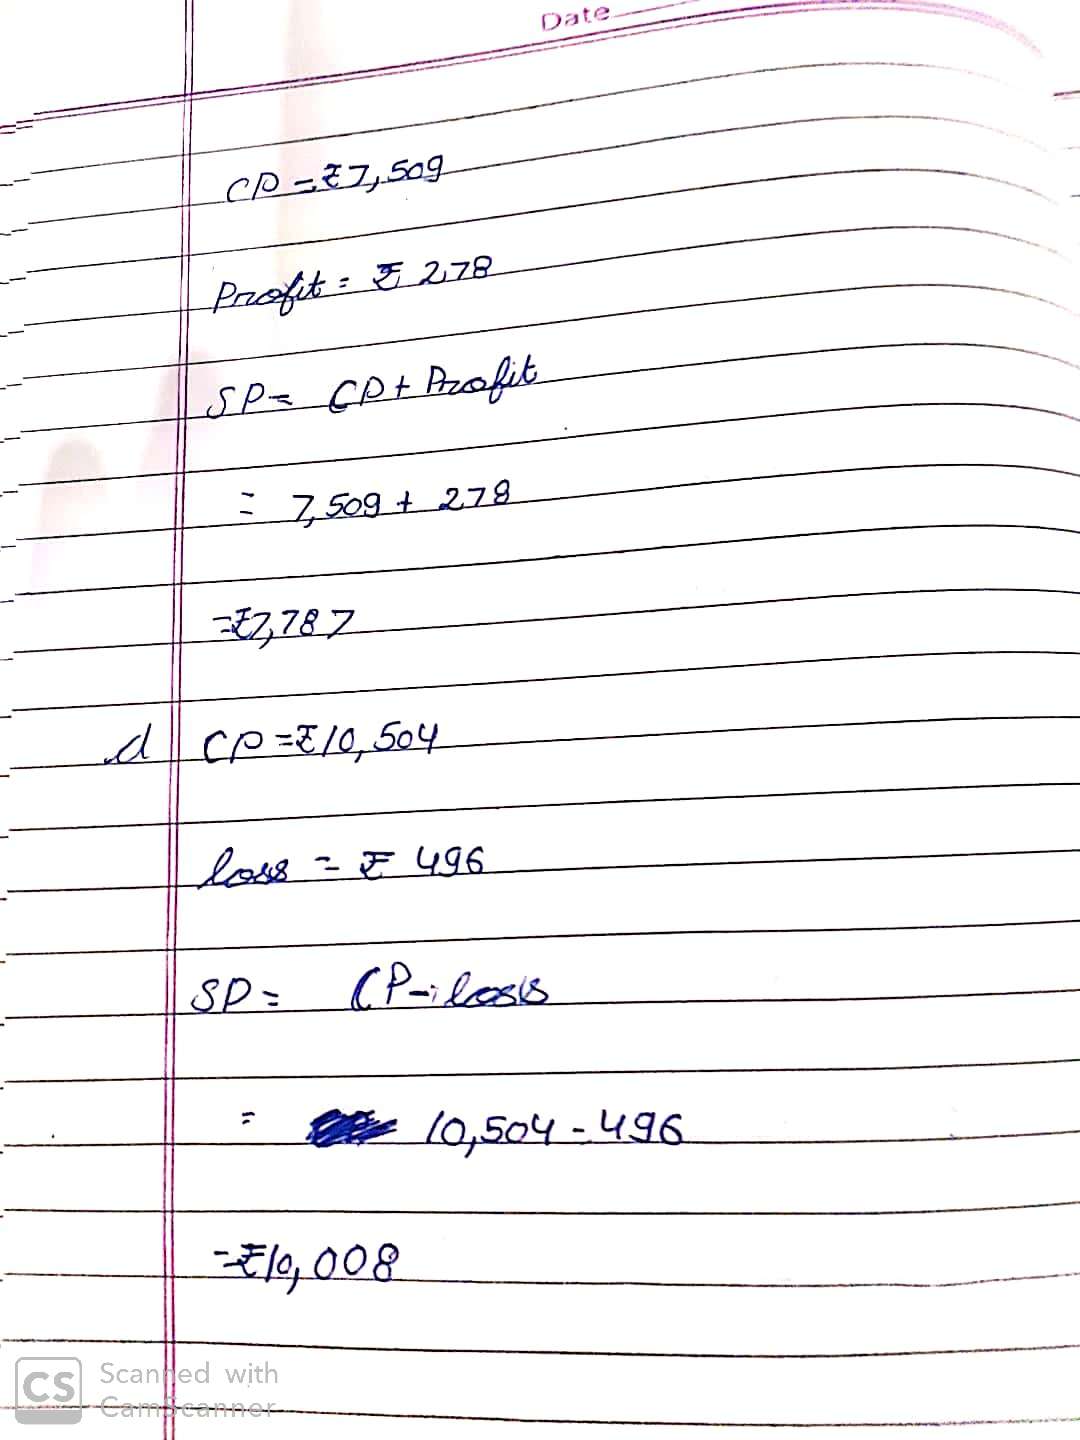 Date
CP = ₹7,509
Profit = ₹ 278
SP = CP + Profit
= 7,509 + 278
= ₹7,787
d CP = ₹10,504
loss = ₹ 496
SP = CP - loss
= 10,504 - 496
= ₹10,008
CS Scanned with
CamScanner